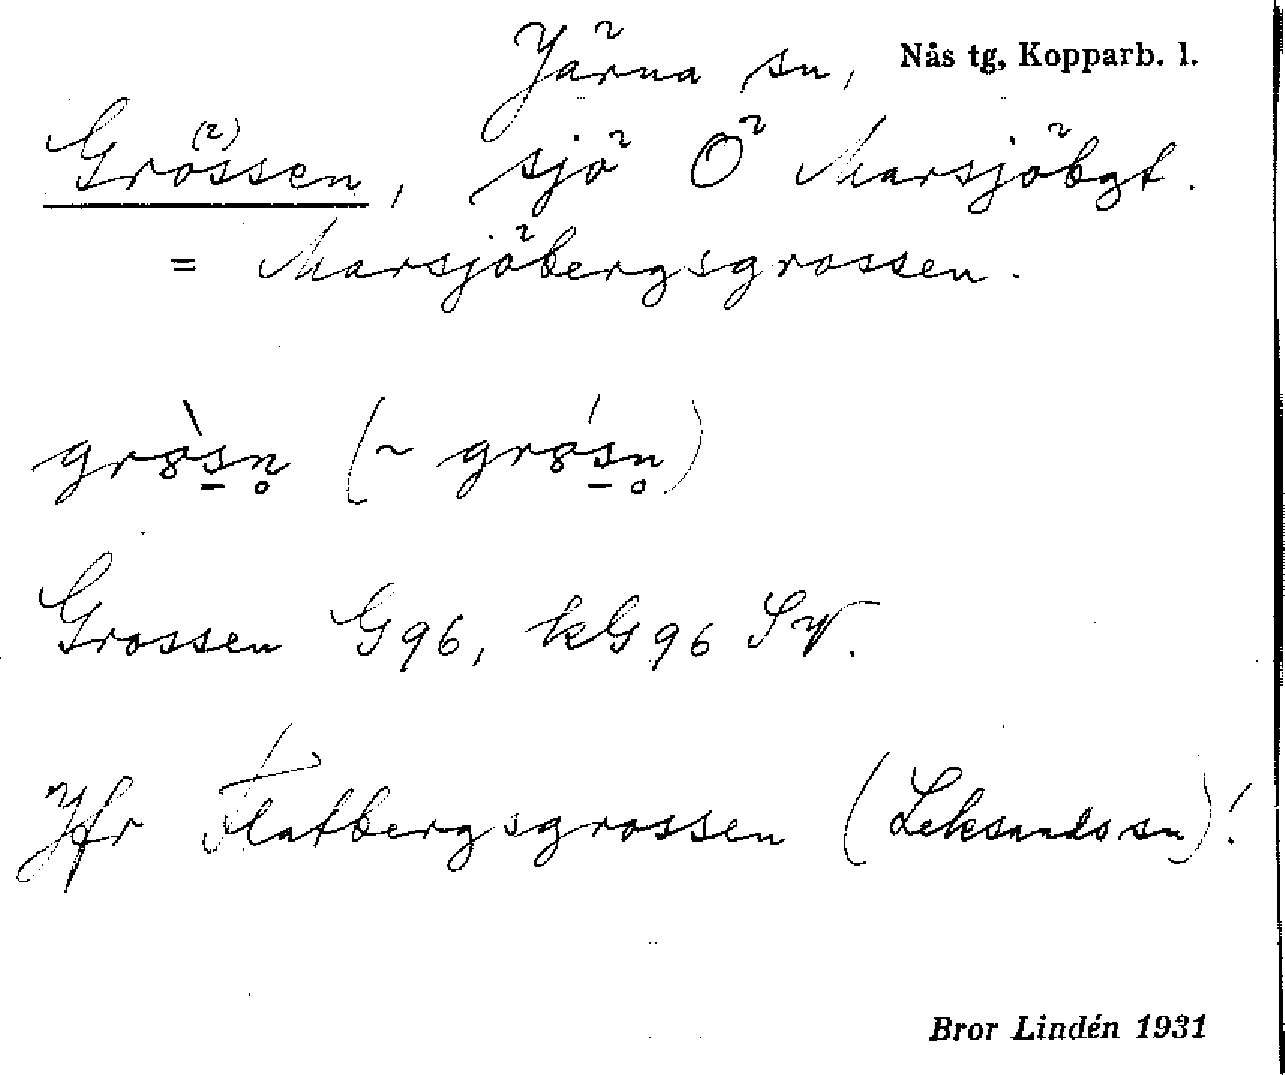 Järna sn, Nås tg, Kopparb. l.
Grössen, sjö Ö Marsjöbgt.
= Marsjöbergsgrossen.
grɞ̀s̠n̥ (~ grɞ́s̠n̥)
Grossen G96, kG96 SV.
Jfr Flatbergsgrossen (Leksands sn)!
Bror Lindén 1931